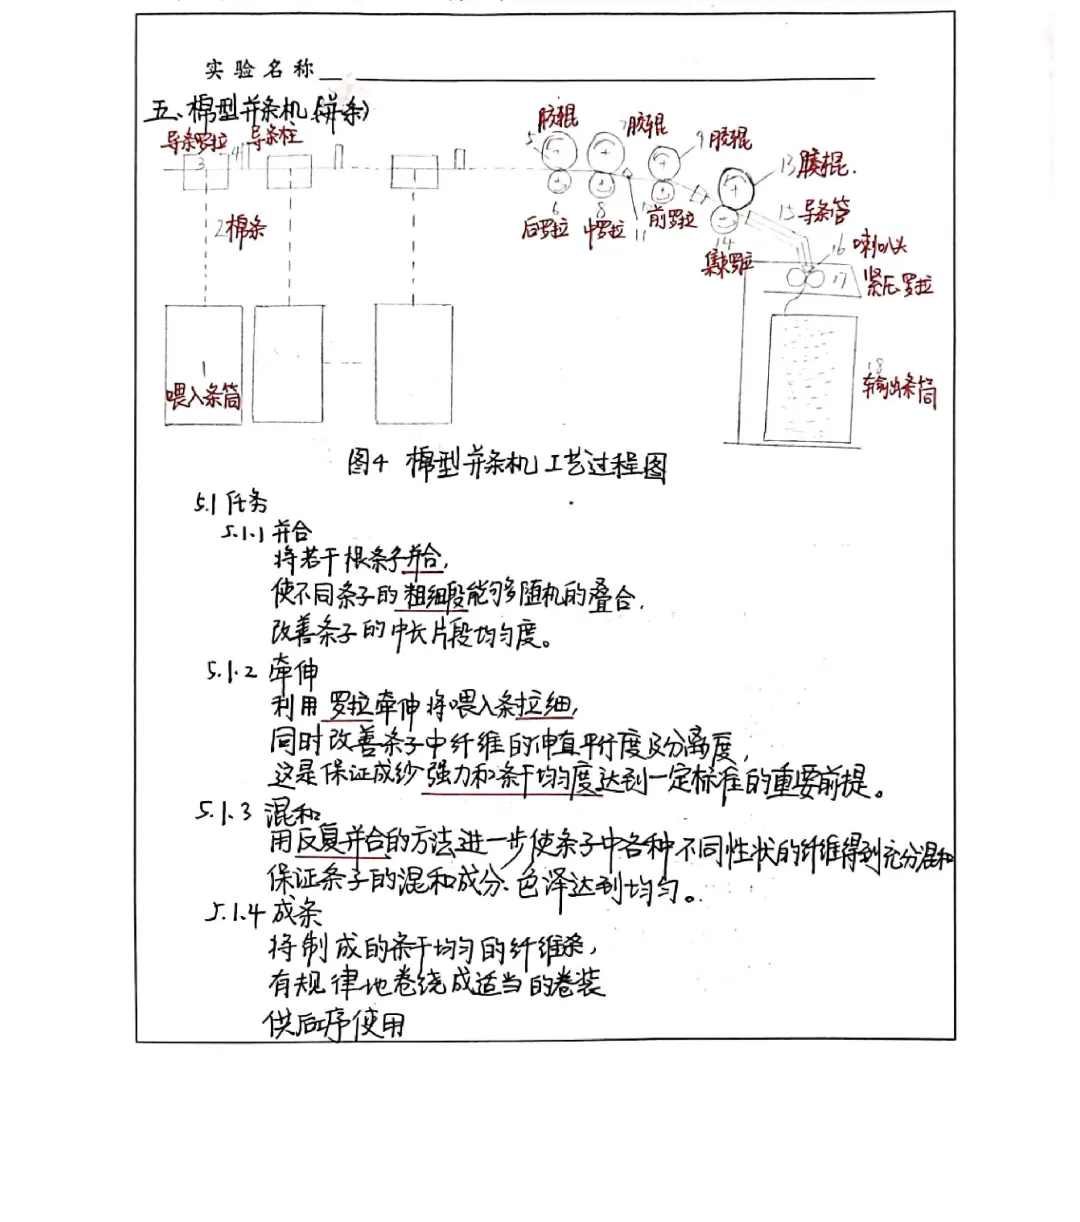 实验名称
五、棉型并条机(并条)
导条罗拉 3 4 导条柱
5 胶辊
7 胶辊
9 胶辊
13 胶辊.
2 棉条
6
后罗拉
8
中罗拉
11
前罗拉
14
集束罗拉
15 导条管
16 喇叭头
17 紧压罗拉
1
喂入条筒
18
输出条筒
图4 棉型并条机工艺过程图
5.1 任务
5.1.1 并合
将若干根条子并合,
使不同条子的粗细段能够随机的叠合,
改善条子的中长片段均匀度。
5.1.2 牵伸
利用罗拉牵伸将喂入条拉细,
同时改善条子中纤维的伸直平行度及分离度,
这是保证成纱强力和条干均匀度达到一定标准的重要前提。
5.1.3 混和
用反复并合的方法进一步使条子中各种不同性状的纤维得到充分混和
保证条子的混和成分、色泽达到均匀。
5.1.4 成条
将制成的条干均匀的纤维条,
有规律地卷绕成适当的卷装
供后序使用